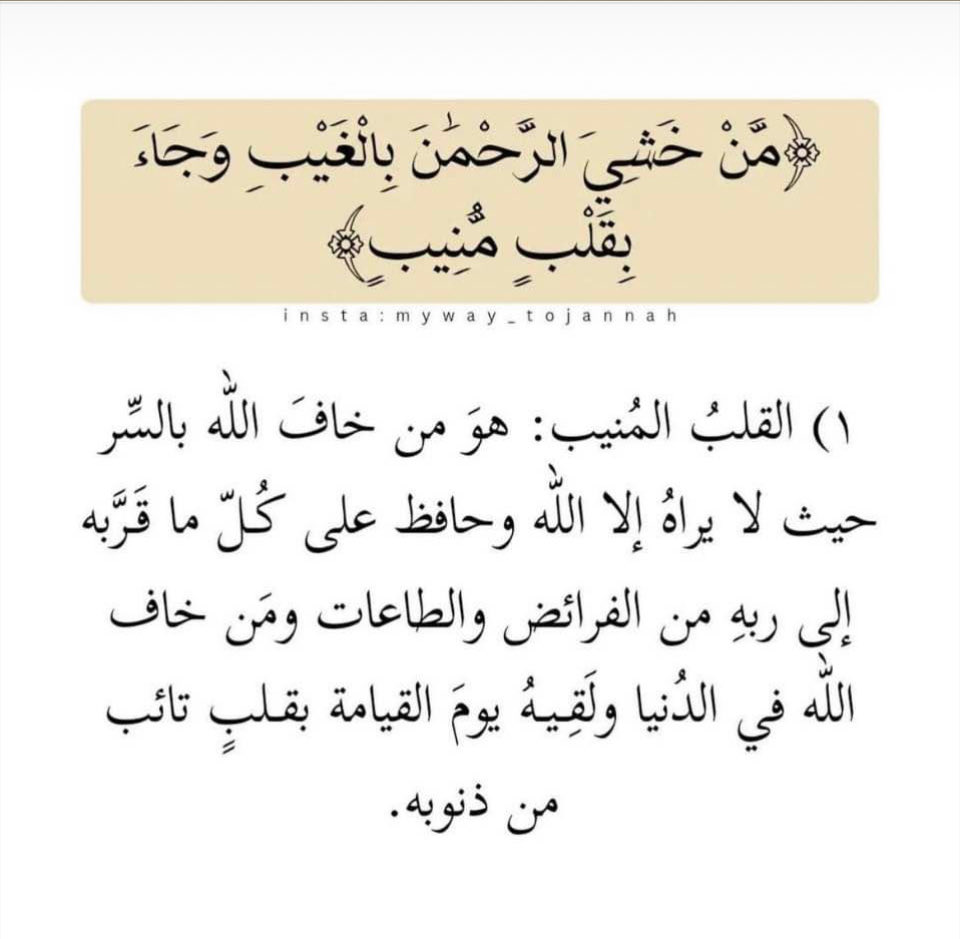 ﴿مَّنْ خَشِيَ الرَّحْمَٰنَ بِالْغَيْبِ وَجَاءَ
بِقَلْبٍ مُّنِيبٍ﴾
insta:myway_tojannah
١) القلبُ المُنيب: هوَ من خافَ الله بالسِّر
حيث لا يراهُ إلا الله وحافظ على كُلّ ما قَرَّبه
إلى ربهِ من الفرائض والطاعات ومَن خاف
الله في الدُنيا ولَقِيهُ يومَ القيامة بقلبٍ تائب
من ذنوبه.